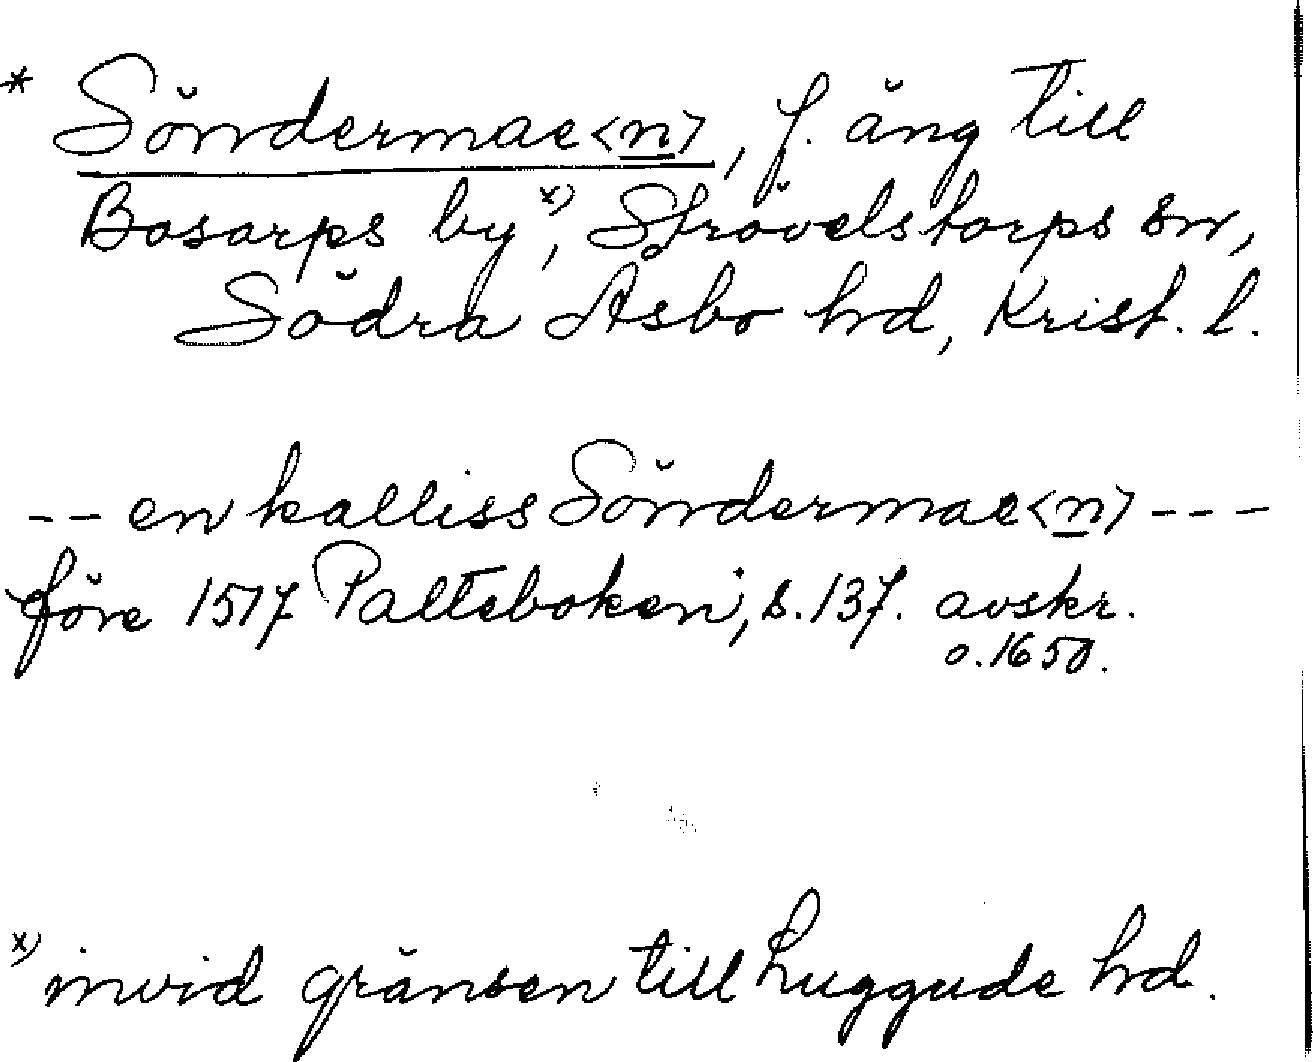 * Söndermae<n>, f. äng till
Bosarps by x), Strövelstorps sn,
Södra Åsbo hd, Krist. l.
-- en kalliss Söndermae<n> ---
före 1517 Palteboken, s. 137. avskr.
o. 1650.
x) invid gränsen till Luggude hd.